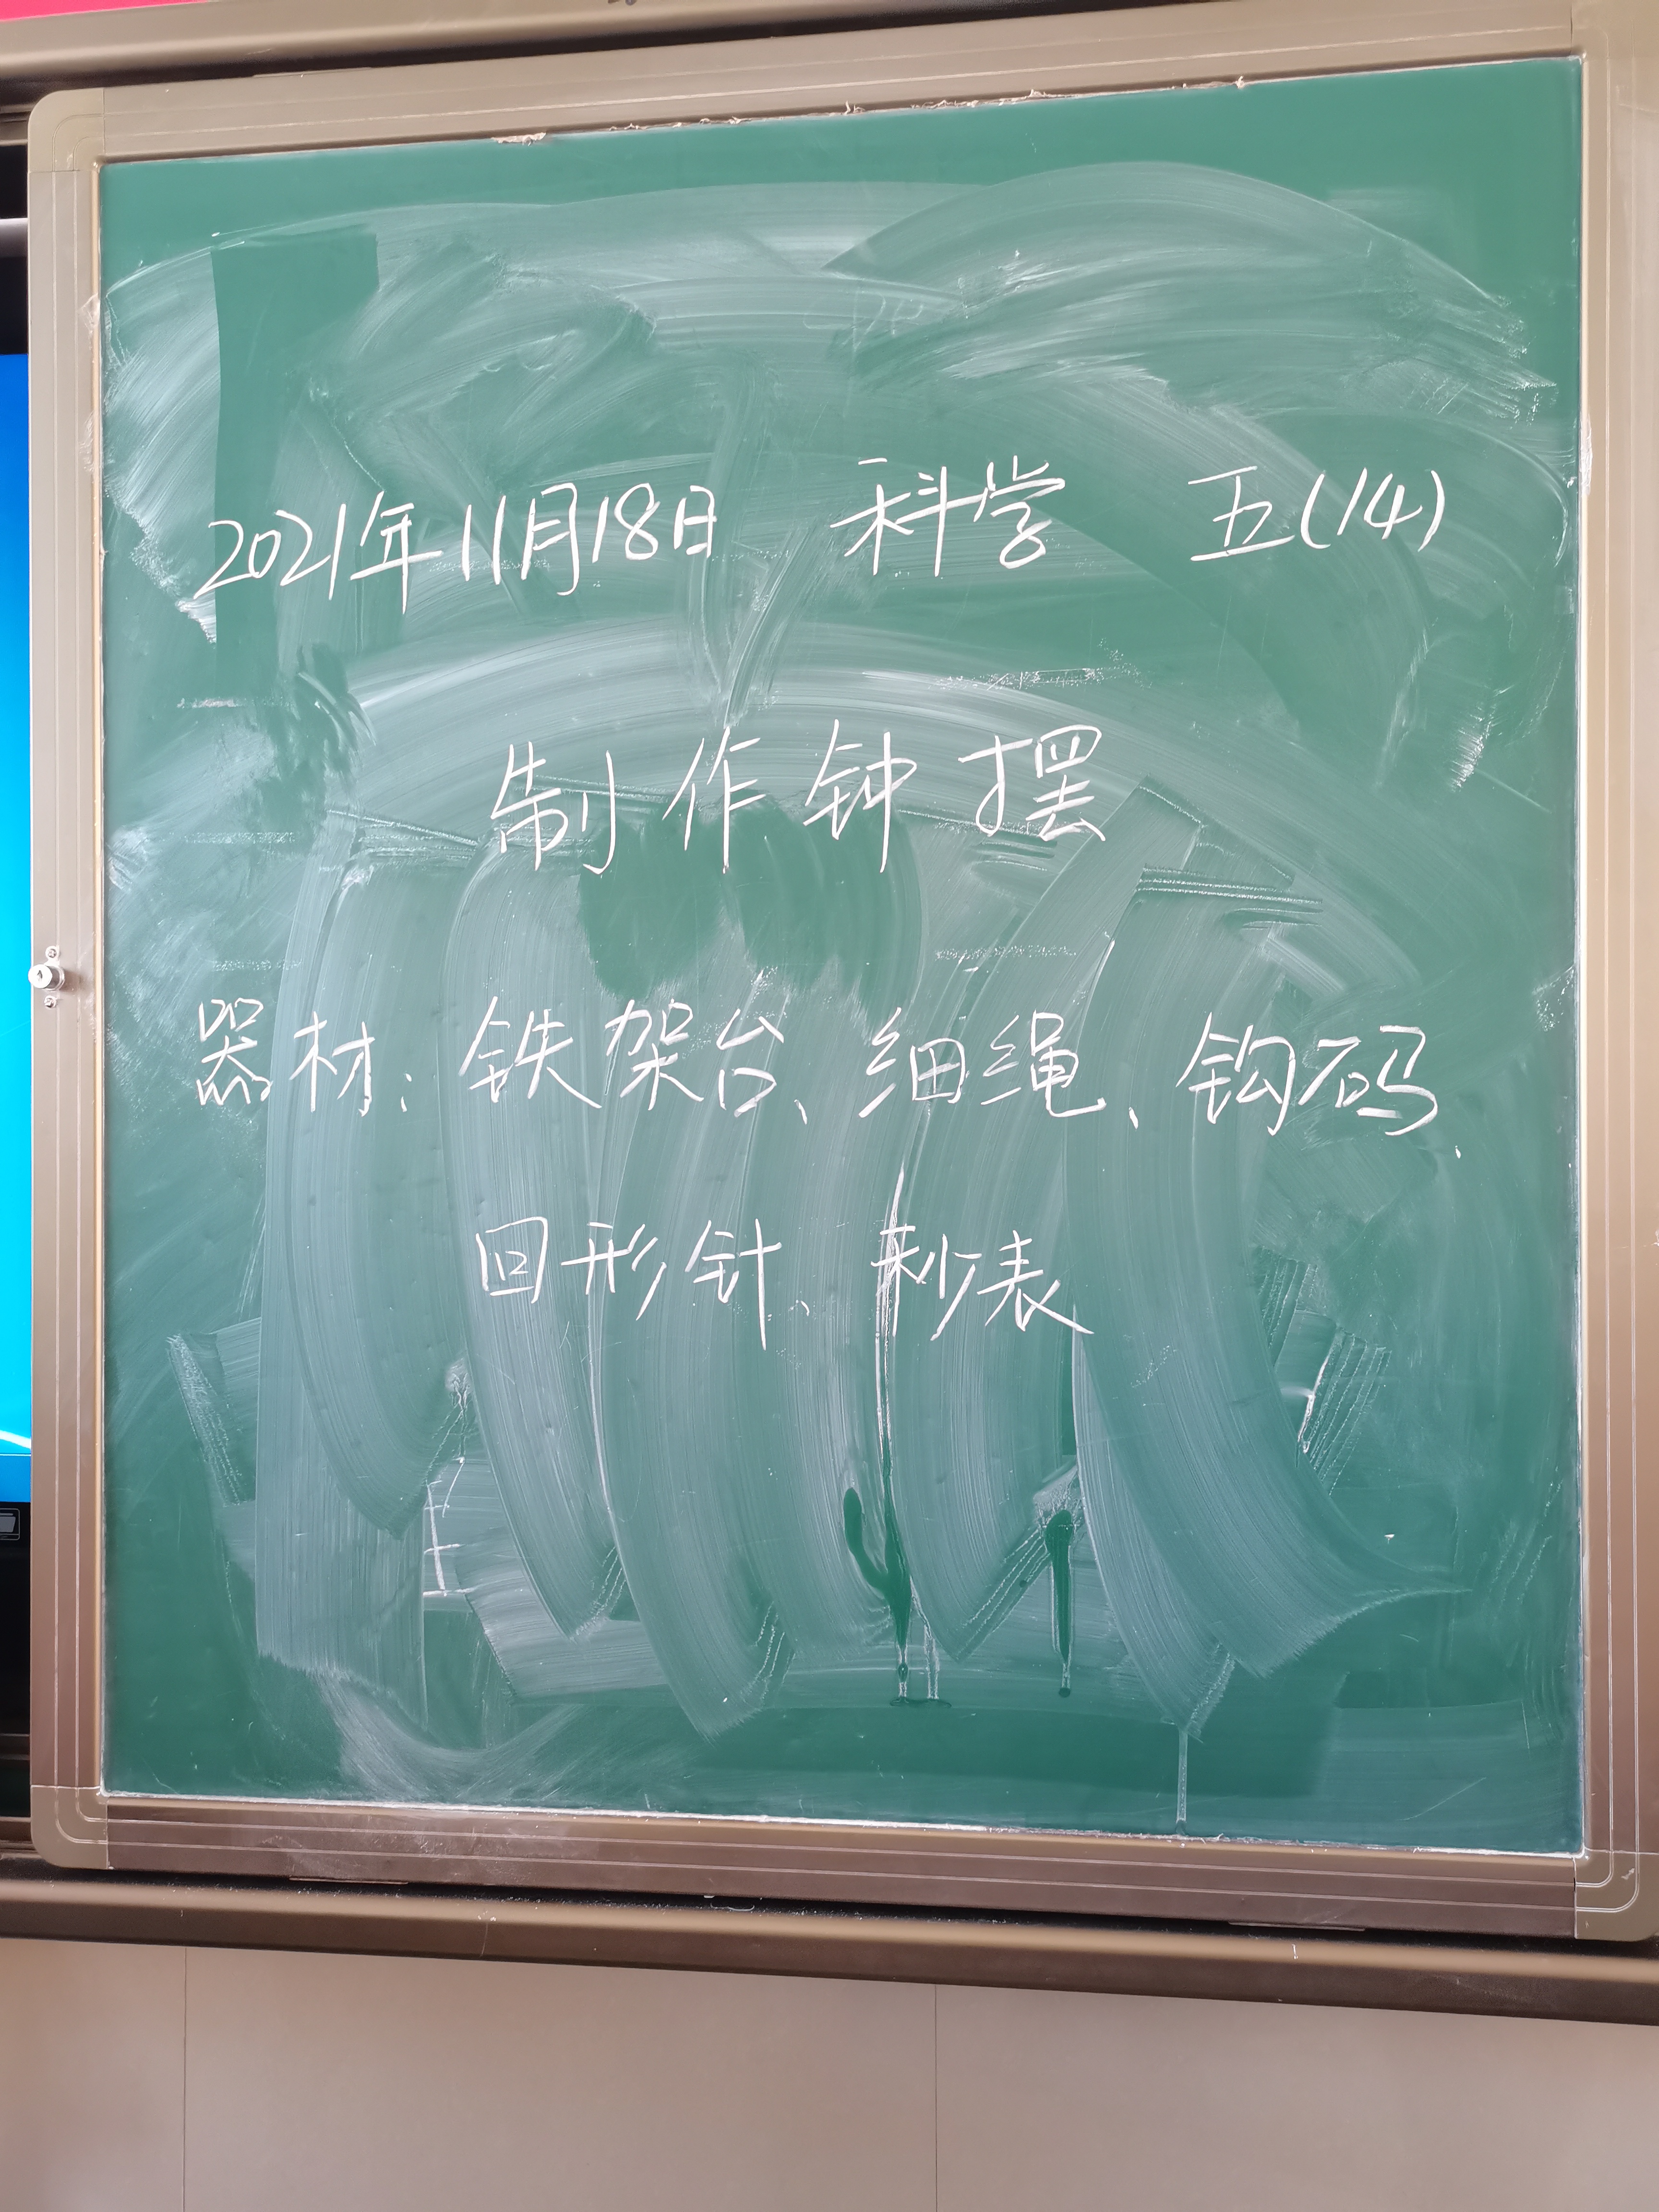 2021年11月18日 科学 五(14)
制作钟摆
器材:铁架台、细绳、钩码、
回形针、秒表